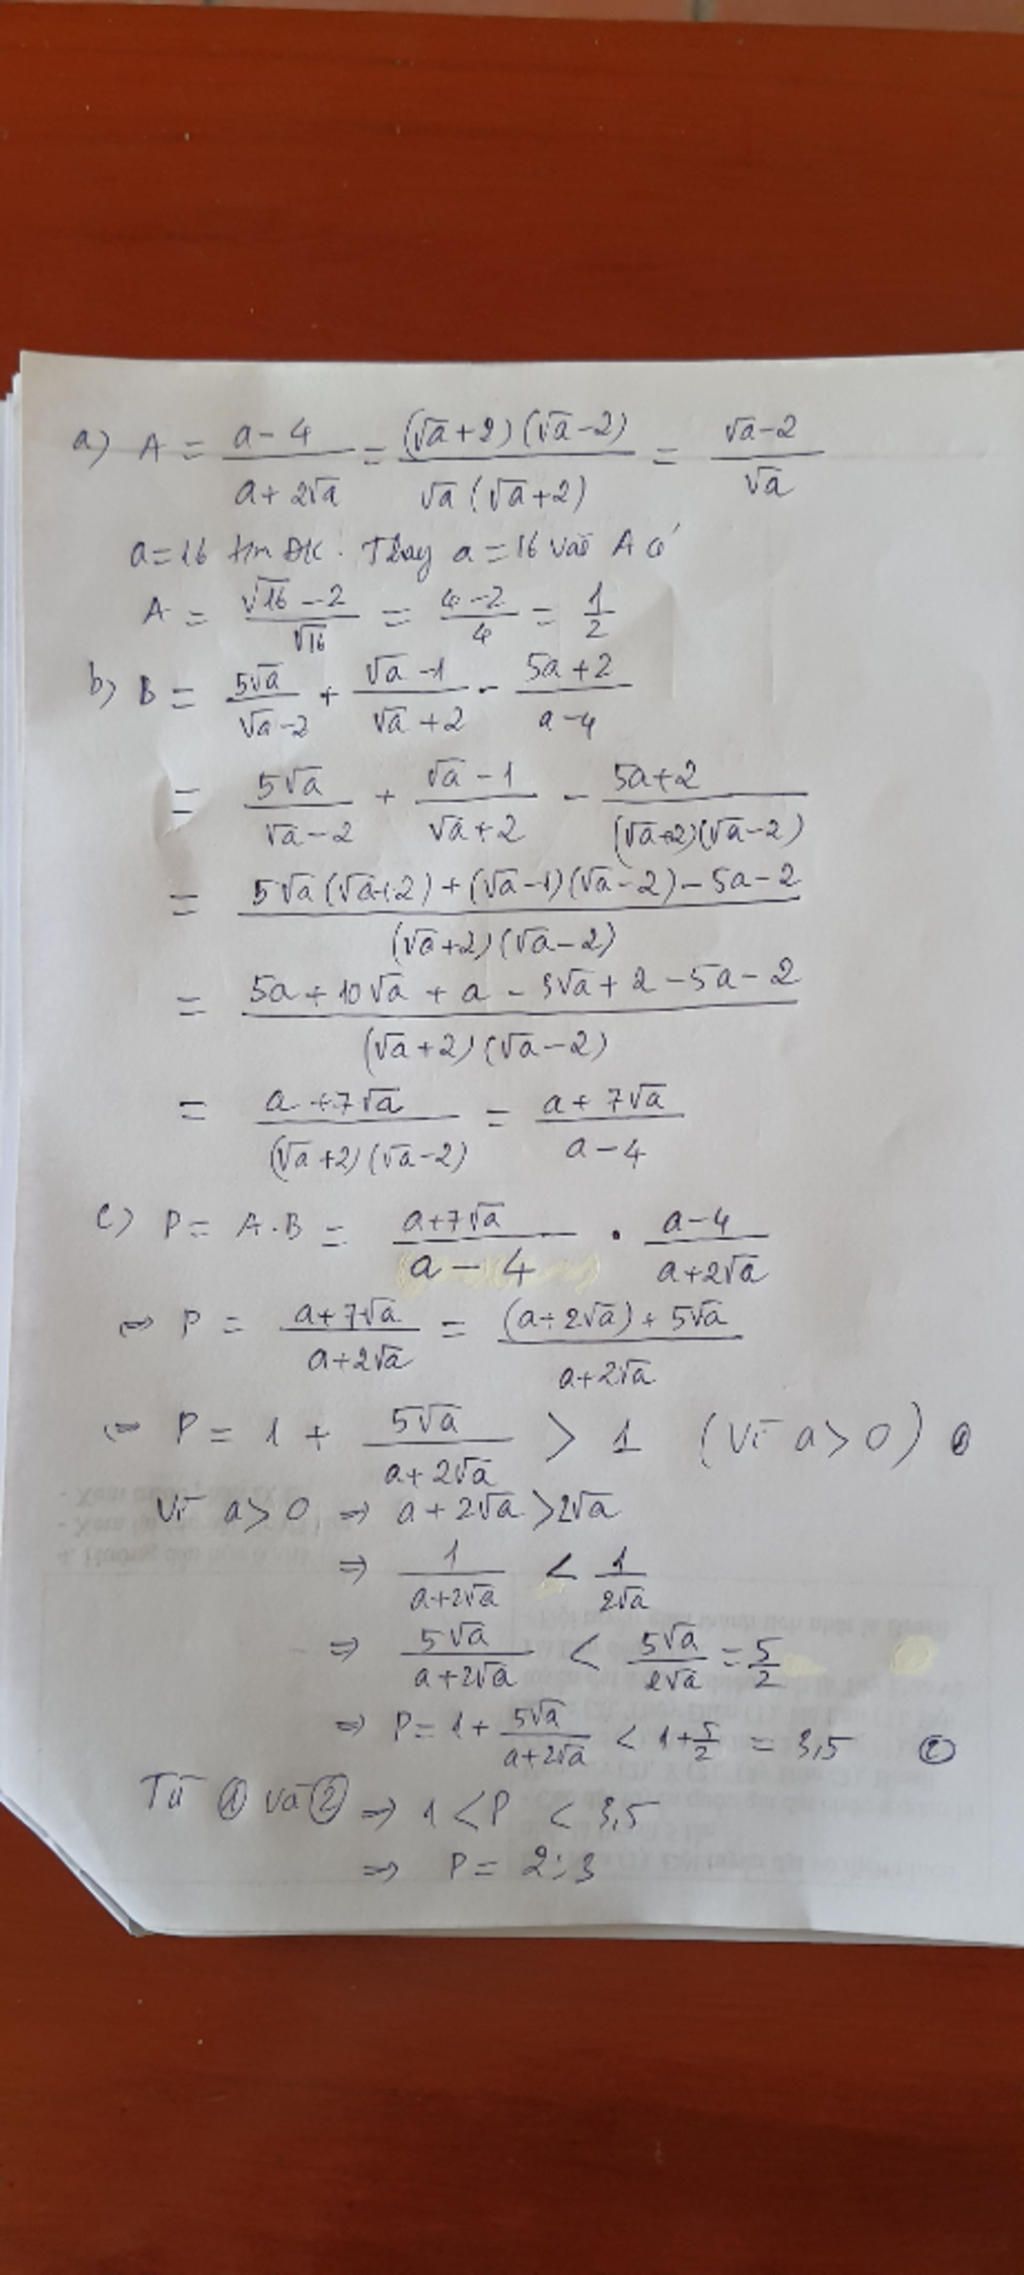 a) A = (a - 4)/(a + 2√a) = ((√a + 2)(√a - 2))/(√a(√a + 2)) = (√a - 2)/√a
a = 16 tm ĐK. Thay a = 16 vào A có
A = (√16 - 2)/√16 = (4 - 2)/4 = 1/2
b) B = 5√a/(√a - 2) + (√a - 1)/(√a + 2) - (5a + 2)/(a - 4)
= 5√a/(√a - 2) + (√a - 1)/(√a + 2) - (5a + 2)/((√a + 2)(√a - 2))
= (5√a(√a + 2) + (√a - 1)(√a - 2) - 5a - 2)/((√a + 2)(√a - 2))
= (5a + 10√a + a - 3√a + 2 - 5a - 2)/((√a + 2)(√a - 2))
= (a + 7√a)/((√a + 2)(√a - 2)) = (a + 7√a)/(a - 4)
c) P = A.B = (a + 7√a)/(a - 4) . (a - 4)/(a + 2√a)
⇔ P = (a + 7√a)/(a + 2√a) = ((a + 2√a) + 5√a)/(a + 2√a)
⇔ P = 1 + 5√a/(a + 2√a) > 1 (Vì a > 0) ①
Vì a > 0 ⇒ a + 2√a > 2√a
⇒ 1/(a + 2√a) < 1/(2√a)
⇒ 5√a/(a + 2√a) < 5√a/(2√a) = 5/2
⇒ P = 1 + 5√a/(a + 2√a) < 1 + 5/2 = 3,5 ②
Từ ① và ② ⇒ 1 < P < 3,5
⇒ P = 2; 3